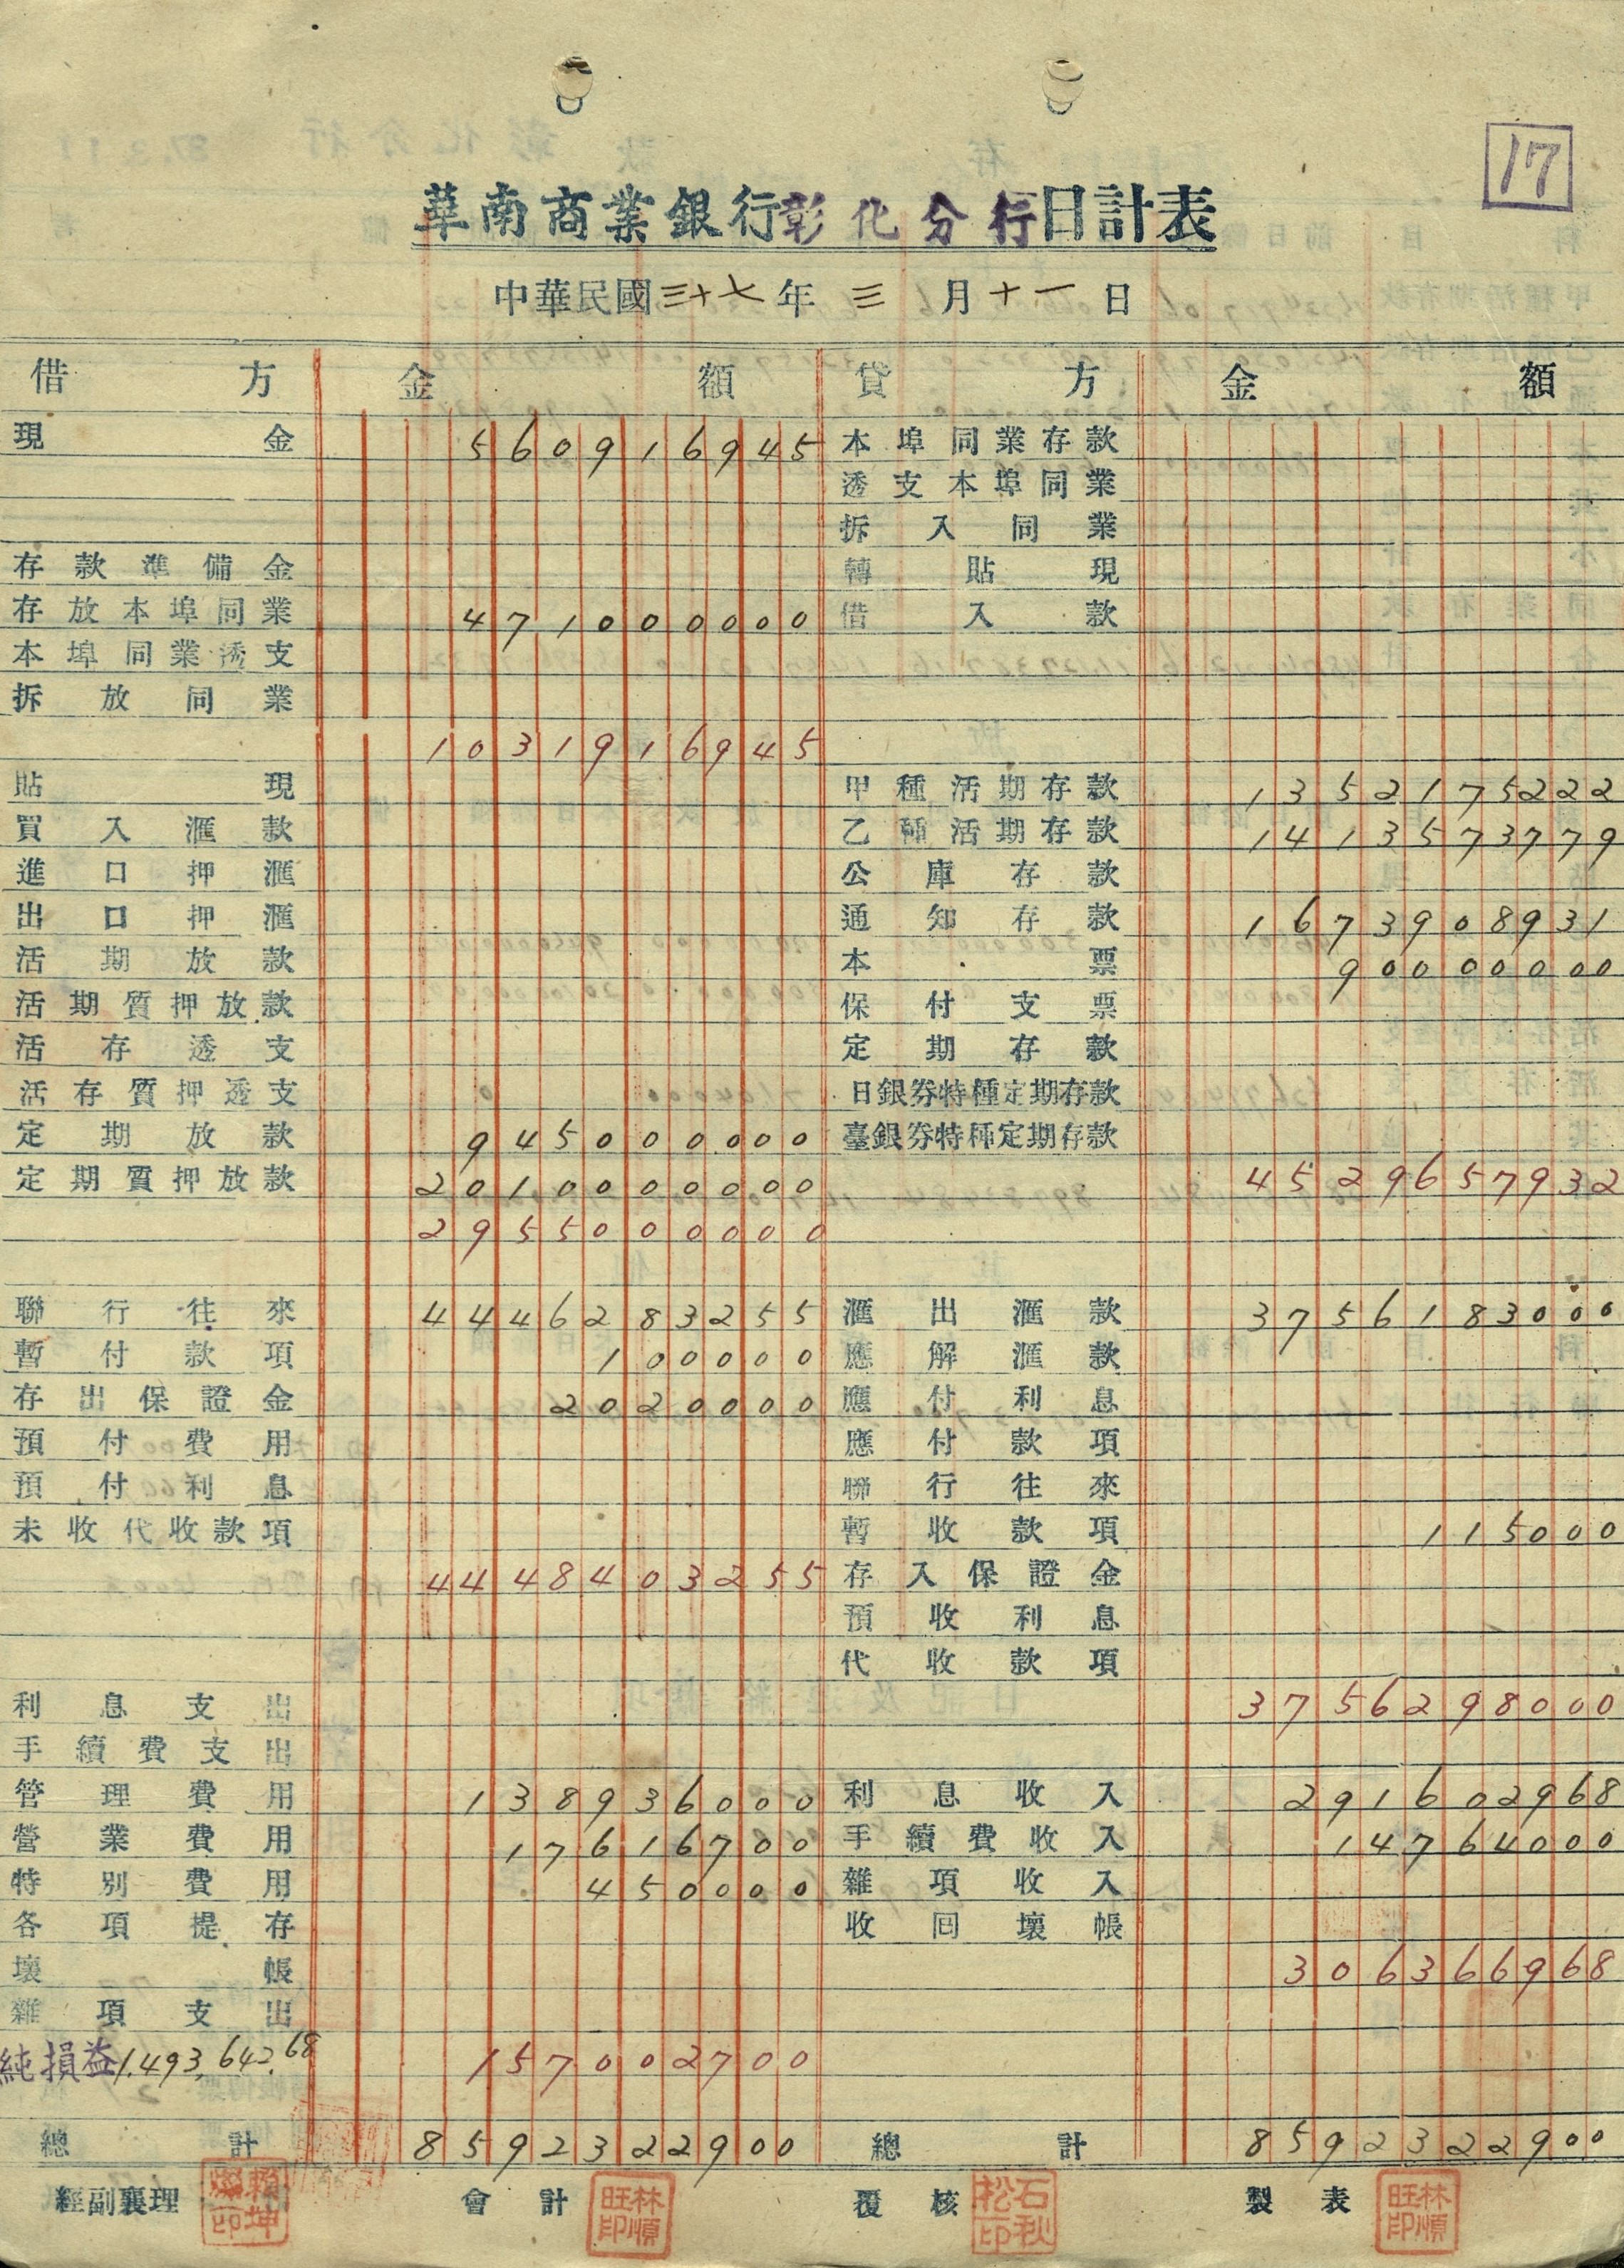 17
華南商業銀行彰化分行日計表
中華民國三十七年三月十一日
借方 金額 貸方 金額
現金 560916945 本埠同業存款
透支本埠同業
拆入同業
存款準備金 轉貼現
存放本埠同業 471000000 借入款
本埠同業透支
拆放同業
1031916945
貼現 甲種活期存款 1352175222
買入滙款 乙種活期存款 1413573779
進口押滙 公庫存款
出口押滙 通知存款 1673908931
活期放款 本票 90000000
活期質押放款 保付支票
活存透支 定期存款
活存質押透支 日銀券特種定期存款
定期放款 945000000 臺銀券特種定期存款
定期質押放款 2010000000 4529657932
2955000000
聯行往來 4446283255 滙出滙款 3756183000
暫付款項 100000 應解滙款
存出保證金 2020000 應付利息
預付費用 應付款項
預付利息 聯行往來
未收代收款項 暫收款項 115000
4448403255 存入保證金
預收利息
代收款項
利息支出 3756298000
手續費支出
管理費用 138936000 利息收入 291602968
營業費用 17616700 手續費收入 14764000
特別費用 450000 雜項收入
各項提存 收回壞帳
壞帳 306366968
雜項支出
純損益1,493,642.68 157002700
總計 8592322900 總計 8592322900
經副襄理 會計 林順旺印 覆核 石秋松印 製表 林順旺印